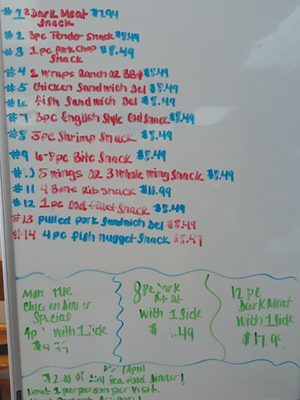 #1 2 Dark Meat $7.94
Snack
#2 3pc Tender snack $8.49
#3 1pc Pork Chop $8.49
Snack
#4 2 wraps Ranch oz BBQ $8.49
#5 chicken Sandwich Del $8.49
#6 fish Sandwich Del $8.49
#7 3pc English Style Cod Snack $8.49
#8 5pc Shrimp Snack $8.49
#9 6-8pc Bite Snack $8.49
5 wings oz 3 whole wing Snack $8.49
#11 4 Bone Rib snack $11.99
#12 1pc Cod fillet Snack $8.49
#13 Pulled pork Sandwich Del $8.49
#14 4pc fish nugget Snack $8.49
Mon Tue
Chicken Dinner
Special
with 1 side
8pc Dark
Meat
with 1 Side
12pc
Dark Meat
with 1 Side
April
any Sea food dinner!
per person per visit